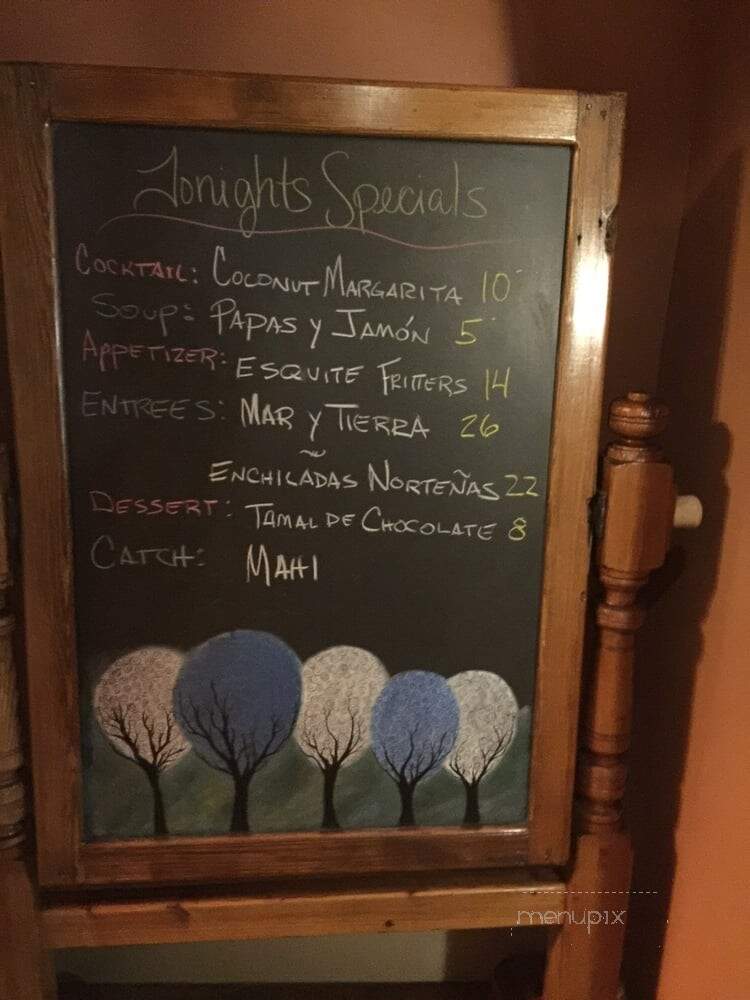 Tonights Specials
COCKTAIL: COCONUT MARGARITA 10
SOUP: PAPAS y JAMÓN 5
APPETIZER: ESQUITE FRITTERS 14
ENTREES: MAR y TIERRA 26
ENCHILADAS NORTEÑAS 22
DESSERT: TAMAL DE CHOCOLATE 8
CATCH: MAHI
menupix